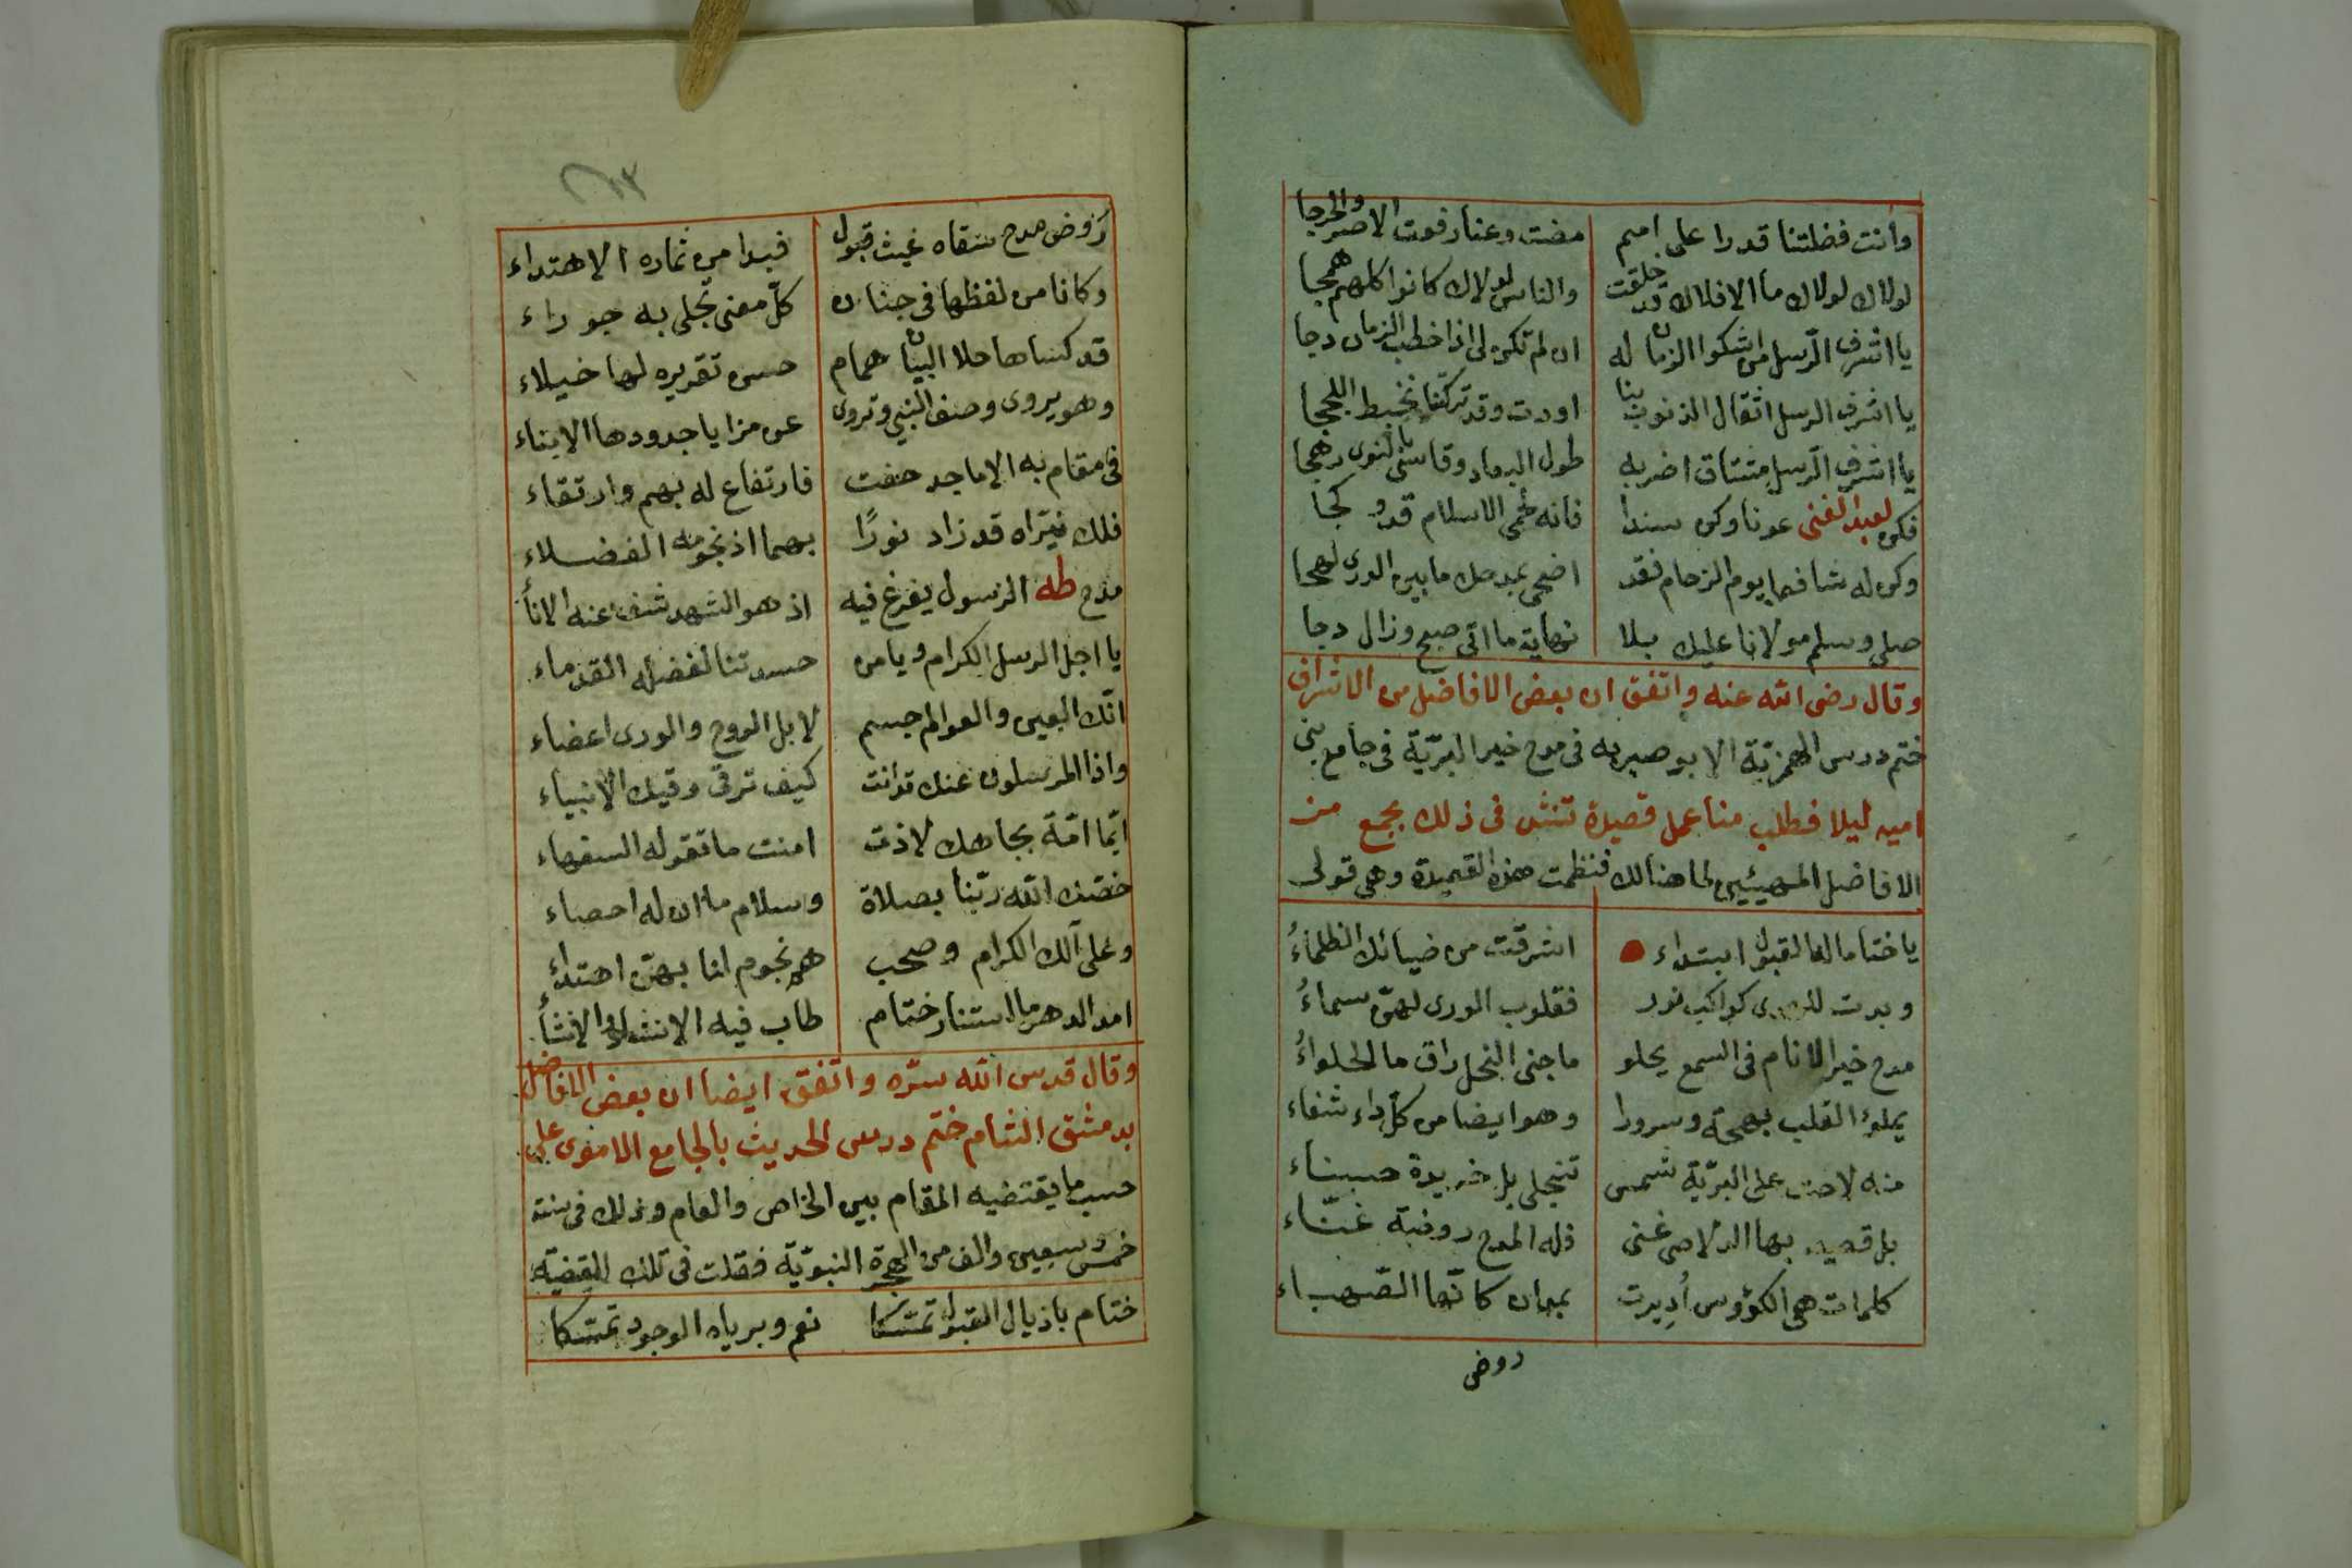 وانت فضلتنا قدرا على امم مضت وعنا رفعت الاصر والحرجا
لولاك لولاك ما الافلاك قد خلقت والناس لولاك كانوا كلهم همجا
يا اشرف الرسل من اشكوا الزمان له ان لم تكن لى اذا خطب الزمان دجا
يا اشرف الرسل اثقال الذنوب بنا اودت وقد تركتنا نخبط اللججا
يا اشرف الرسل مشتاق اضر به طول البعاد وقاسى بالنوى رهجا
فكن لعبد الغنى عونا وكن سندا فانه لحمى الاسلام قد
وكن له شافعا يوم الزحام فقد اضحى بمدحك ما بين الورى لهجا
صلى وسلم مولانا عليك بلا نهاية ما اتى صبح وزال دجا
وقال رضى الله عنه واتفق ان بعض الافاضل من الاشراف
ختم درس الهمزية الابوصيريه فى مدح خير البرية فى جامع بنى
اميه ليلا فطلب منا عمل قصيدة تنشد فى ذلك بجمع من
الافاضل المهيئين لما هنالك فنظمت هذه القصيدة وهى قولى
يا ختاما له القبول ابتداء اشرقت من ضيائك الظلماءُ
وبدت للورى كواكب نور فقلوب الورى لهن سماءُ
مدح خير الانام فى السمع يحلو ما جنى النحل راق ما الحلواءُ
يملؤ القلب بهجة وسرورا وهو ايضا من كل داء شفاء
منه لاحت على البرية شمس تنجلى بل خريدة حسناء
بل قصيد بها الدلاصى غنى فله المدح روضة غناء
كلمات هى الكؤوس أديرت بمعان كانها الصهباء
روض
روض مدح سقاه غيث قبول فبدا من ثماره الاهتداء
وكانا من لفظها فى جنان كل معنى تجلى به حوراء
قد كساها حلا البيان همام حسن تقريره لها خيلاء
وهو يروى وصف النبى وتروى عن مزايا جدودها الابناء
فى مقام به الاماجد حفت فارتفاع له بهم وارتقاء
فلك نيراه قد زاد نورًا بهما اذ نجومه الفضلاء
مدح طه الرسول يفرغ فيه اذ هو الشهد شف عنه الاناء
يا اجل الرسل الكرام ويا من حسدتنا لفضله القدماء
انك العين والعوالم جسم لا بل الروح والورى اعضاء
واذا المرسلون عنك تدانت كيف ترقى رقيك الانبياء
ايما امة بجاهك لاذت امنت ما تقوله السفهاء
خصك الله ربنا بصلاة وسلام ما ان له احصاء
وعلى آلك الكرام وصحب هم نجوم لنا بهن اهتداء
امد الدهر ما استنار ختام طاب فيه الانشاد والانشاء
وقال قدس الله سره واتفق ايضا ان بعض الافاضل
بدمشق الشام ختم درس الحديث بالجامع الاموى على
حسب ما يقتضيه المقام بين الخاص والعام وذلك فى سنة
خمس وسبعين والف من الهجرة النبوية فقلت فى تلك القضية
ختام باذيال القبول تمسكا نعم وبرياه الوجود تمسكا